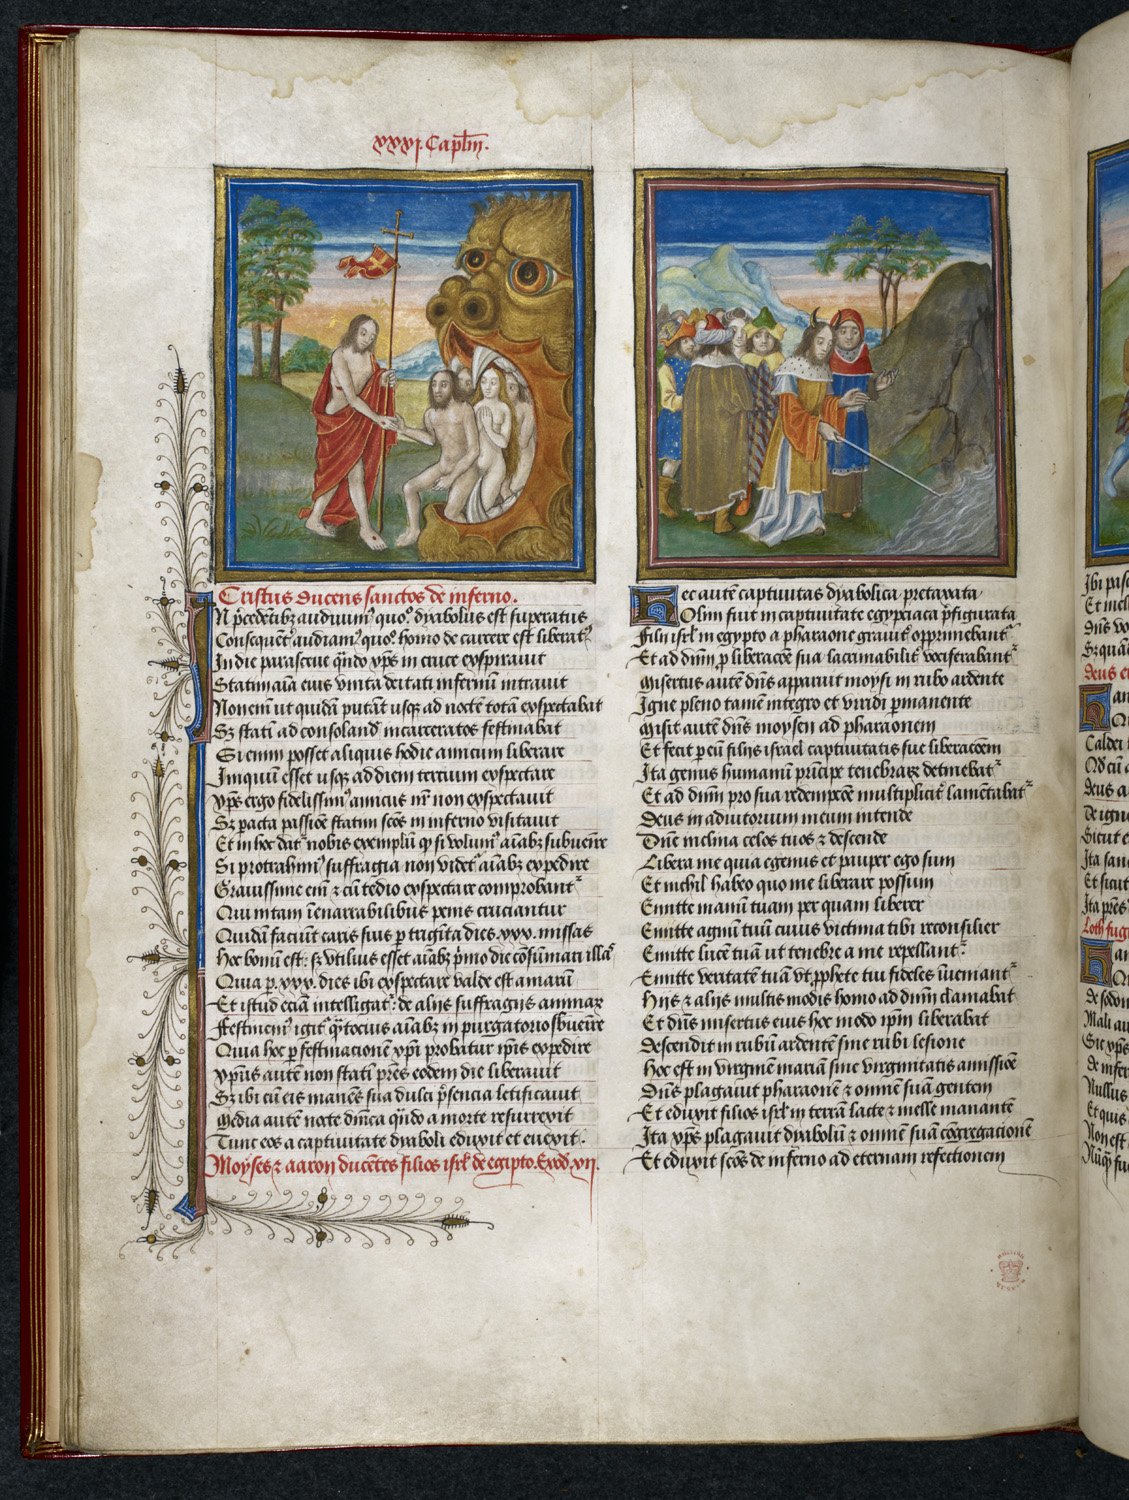 xxxj. Capl̄m.
Cristus ducens sanctos de inferno.
IN p̄cedētibꝫ audiuim⁹ quo͛ dyabolus est superatus
Consequēt͛ audiam⁹ quo͛ homo de carcere est liberat⁹
In die parasceue qn̄do xp̄s in cruce expirauit
Statim aīa eius vnita deitati infernū intrauit
Non em̄ ut quidā putāt usqꝫ ad noctē totā expectabat
Sꝫ statī ad consoland͛ incarceratos festinabat
Si enim posset aliquis hodie amicum liberare
Iniquū esset usqꝫ ad diem tertium expectare
xp̄s ergo fidelissim⁹ amicus nr̄ non expectauit
Sꝫ pacta passiōe statim scōs in inferno visitauit
Et in hoc dat͛ nobis exemplū qꝫ si volum⁹ aīabꝫ subuenīre
Si protrahim⁹ suffragia non videt͛ aīabꝫ expedire
Grauissime em̄ ⁊ cū tedio expectare comprobant͛
Qui in tam īenarrabilibus penis cruciantur
Quidā faciunt caris suis p trigīta dies .xxx. missas
Hoc bonū est: sꝫ vtilius esset aīabꝫ p̄mo die cōsūmari illas
Quia p .xxx. dies ibi expectare valde est amarū
Et istud eciā intelligat͛: de alijs suffragijs animaꝝ
Festinem⁹ igit͛ q̄ tocius aīabꝫ in purgatorio sbuenīre
Quia hoc p festinacionē xpī probatur ip̄is expedire
xp̄us autē non statī p̄res eodem die liberauit
Sꝫ ibi cū eis manēs sua dulci p̄sencia letificauit
Media autē nocte dn̄ica qn̄do a morte resurrexit
Tunc eos a captiuitate dyaboli eduxit et euexit.
Moyses ⁊ aaron ducētes filios isrl̄ de egipto. Exod. xij.
Hec autē captiuitas dyabolica pretaxata
Olim fuit in captiuitate egypciaca p̄figurata
Filij isrl̄ in egypto a pharaone grauit͛ opprimebant͛
Et ad dn̄m p liberacōe sua lacrimabilit͛ vociferabant͛
Misertus autē dn̄s apparuit moysi in rubo ardente
Igne pleno tamē integro et viridi p̄manente
Misit autē dn̄s moysen ad pharaonem
Et fecit p eū filijs israel captiuitatis sue liberacōem
Ita genus humanū principe tenebraꝝ detinebat͛
Et ad dn̄m pro sua redempcōe multiplicit͛ lamētabat͛
Deus in adiutorium meum intende
Dn̄e inclina celos tuos ⁊ descende
Libera me quia egenus et pauper ego sum
Et nichil habeo quo me liberare possum
Emitte manū tuam per quam liberer
Emitte agnū tuū cuius victima tibi reconsilier
Emitte lucē tuā ut tenebre a me repellant͛
Emitte veritatē tuā vt p̄phete tui fideles īueniant͛
Hijs ⁊ alijs multis modis homo ad dn̄m clamabat
Et dn̄s misertus eius hoc modo ip̄m liberabat
Descendit in rubū ardentē sine rubi lesione
Hoc est in virginē mariā sine virginitatis amissiōe
Dn̄s plagauit pharaonē ⁊ omnē suā gentem
Et eduxit filios isrl̄ in terrā lacte ⁊ melle manantē
Ita xp̄s plagauit dyabolū ⁊ omnē suā cōgregacionē
Et eduxit scōs de inferno ad eternam refectionem
Caldei
Deus
Ita
Loth fug
de sodom
Nullus
Et quis
Non est